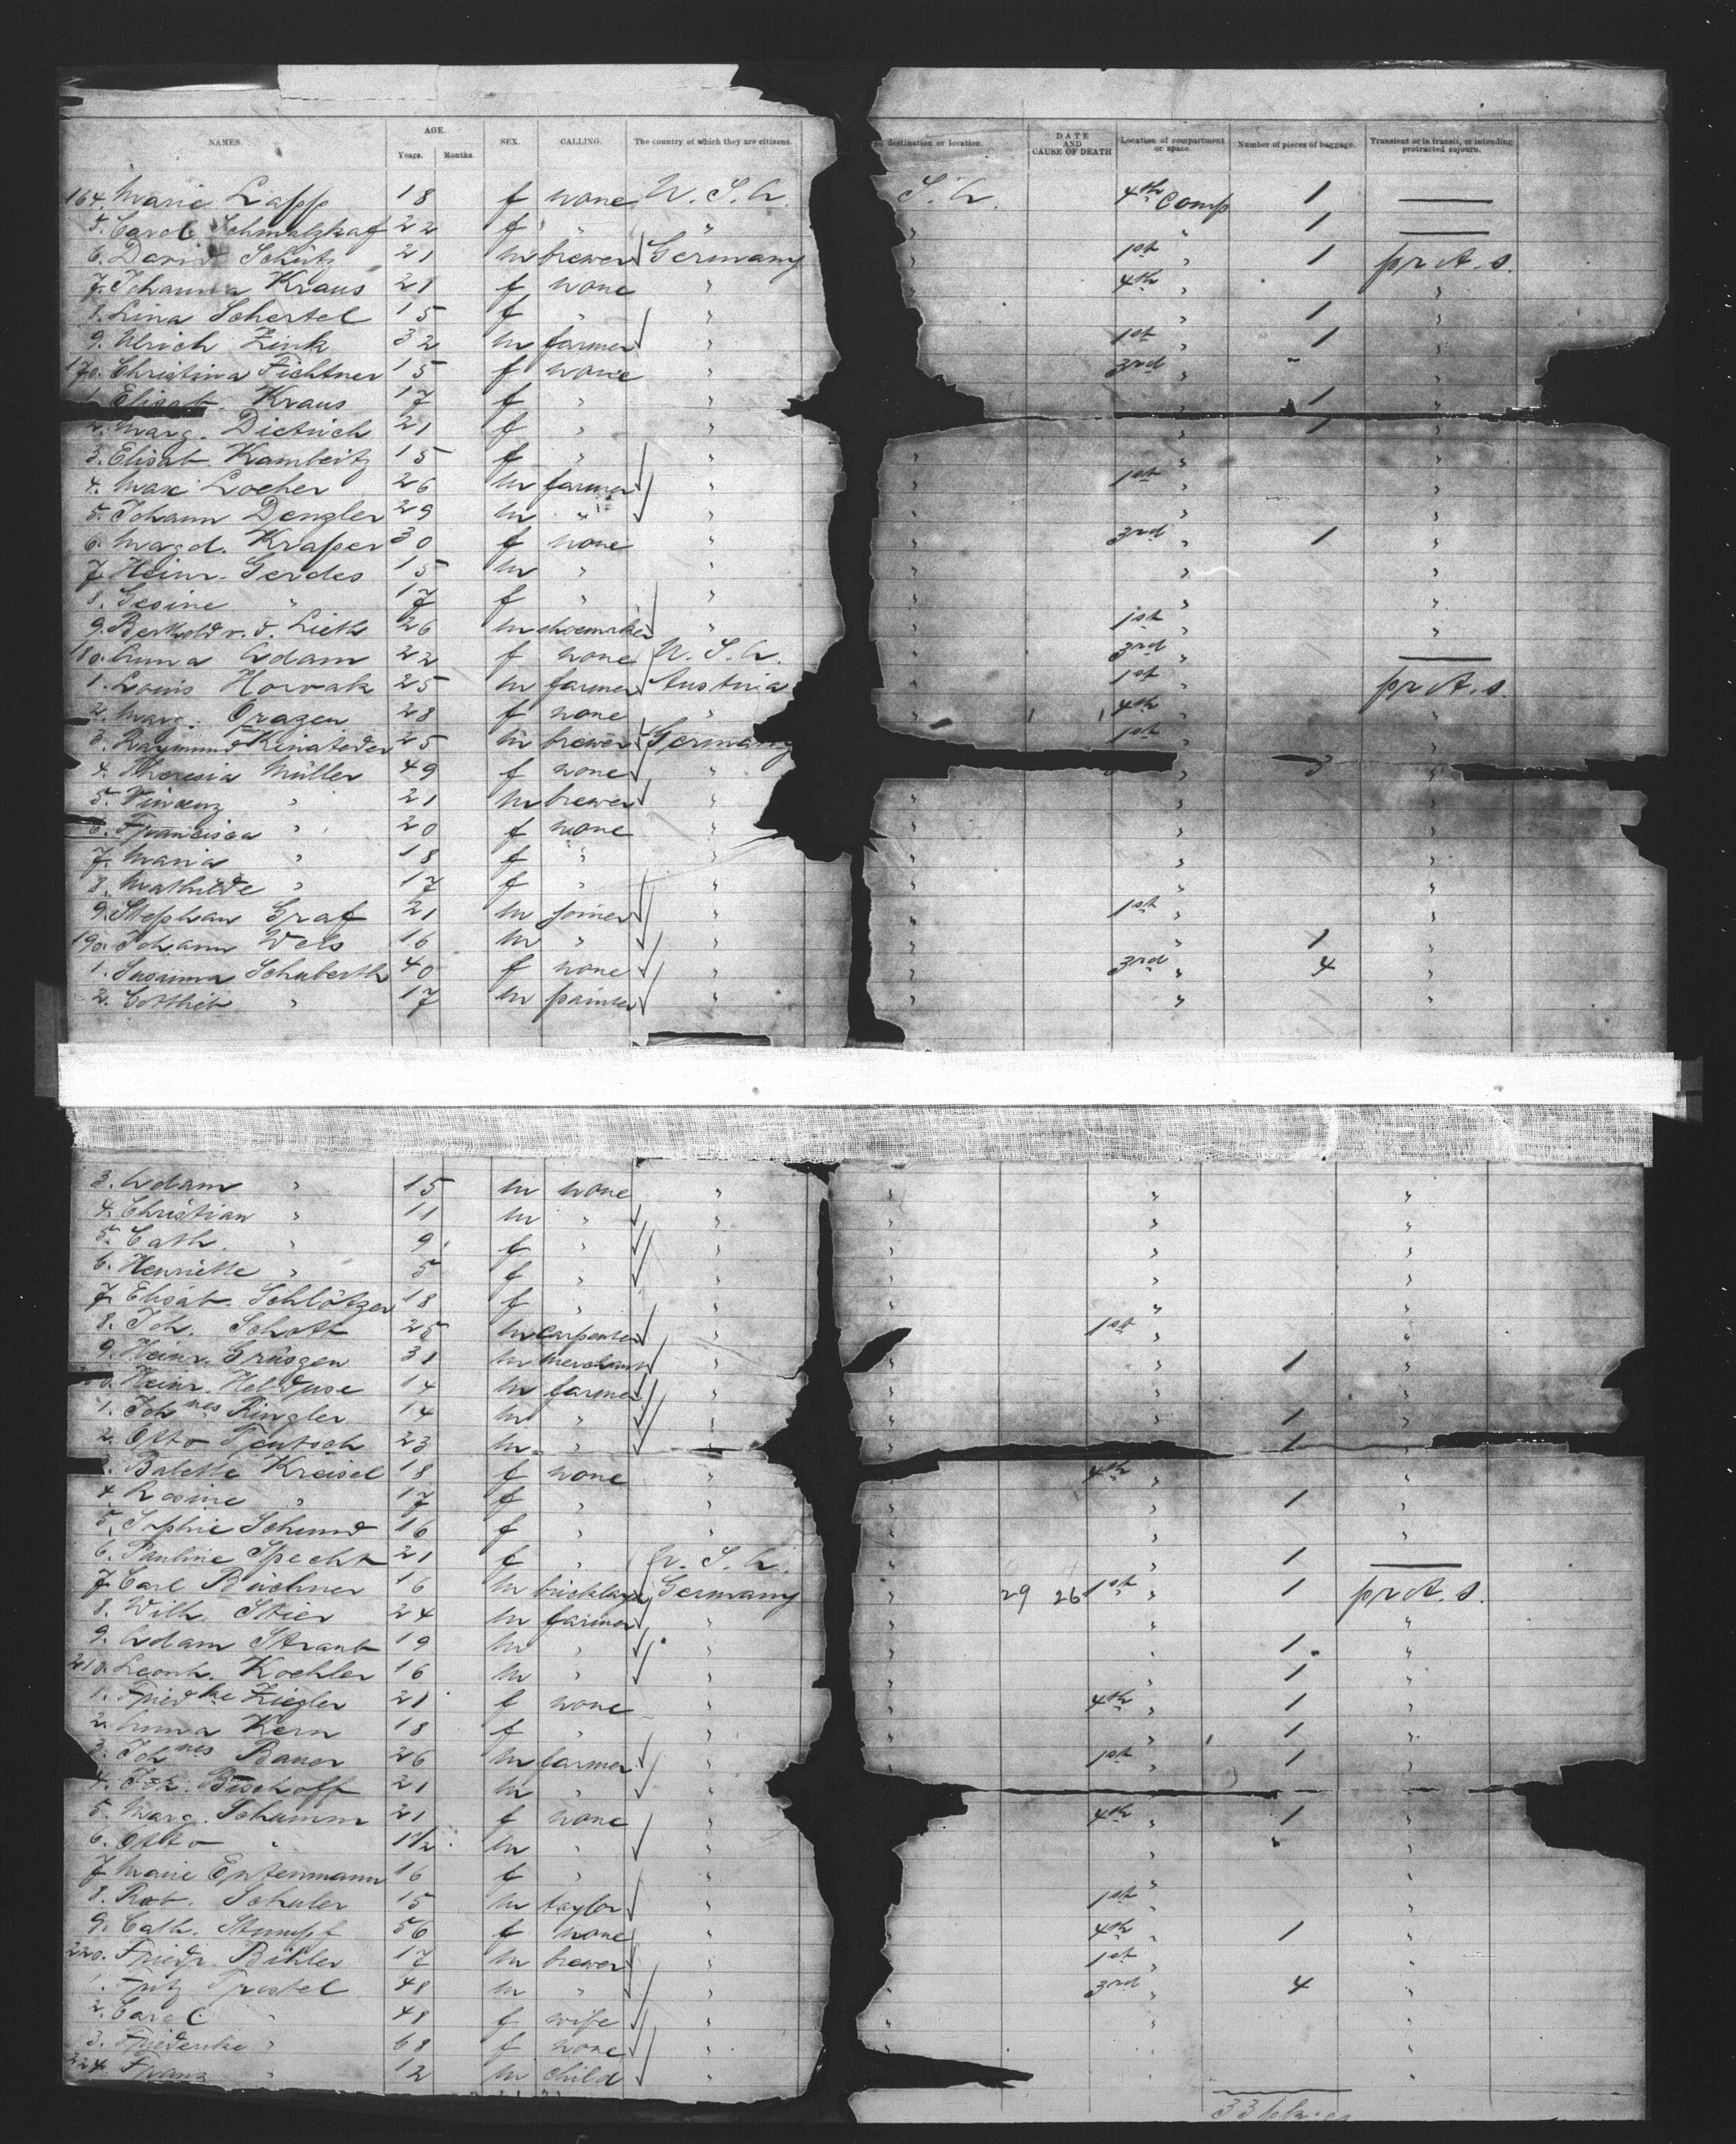 NAMES. AGE. Years. Months. SEX. CALLING. The country of which they are citizens. destination or location. DATE AND CAUSE OF DEATH Location of compartment or space. Number of pieces of baggage. Transient or in transit, or intending protracted sojourn.
164. Marie Lapp 18 f none U. S. A. S. A. 4th Comp 1 —
5. Carol. Schmalzhaf 22 f " " " " 1 —
6. David Schütz 21 m brewer Germany " 1st " 1 prA.s.
7. Johanna Kraus 21 f none " " 4th " "
8. Lina Schertel 15 f " " " " 1 "
9. Ulrich Zink 32 m farmer " 1st " 1 "
170. Christina Fichtner 15 f none " 3rd " " "
1. Elisab. Kraus 17 f " " " 1 "
2. Marg. Dietrich 21 f " " " 1 "
3. Elisab. Kambeitz 15 f " " " " "
4. Max Locher 26 m farmer " " 1st " "
5. Johann Dengler 29 m " " " " "
6. Magd. Kraper 30 f none " " 3rd " 1 "
7. Heinr. Gerdes 15 m " " " " "
8. Gesine " 17 f " " " " "
9. Berthold v. d. Lieth 26 m shoemaker " " 1st " "
180. Anna Adam 22 f none U. S. A. " 3rd " —
1. Louis Horvak 25 m farmer Austria " 1st " prA.s.
2. Marg. Oragen 28 f none " " 4th " "
3. Raymund Kinateder 25 m brewer Germany 1st " "
4. Theresia Müller 49 f none " " 3 "
5. Vincenz " 21 m brewer " " " "
6. Francisca " 20 f none " " " "
7. Maria " 18 f " " " " "
8. Mathilde " 17 f " " " " "
9. Stephan Graf 21 m joiner " " 1st " "
190. Johann Wels 16 m " " " " 1 "
1. Susanna Schuberth 40 f none " " 3rd " 4 "
2. Gottlieb " 17 m painter " " " "
3. Adam " 15 m none " " " "
4. Christian " 11 m " " " " "
5. Cath. " 9 f " " " " "
6. Henriette " 5 f " " " " "
7. Elisab. Schlötzer 18 f " " " " "
8. Joh. Schott 25 m carpenter " " 1st " "
9. Heinr. Grüsgen 31 m merchant " " 1 "
Heinr. Heldusc 14 m farmer " " " "
1. Johnes Ringler 14 m " " " " 1 "
2. Otto Tentsch 23 m " " 1 "
3. Babette Kreisel 18 f none " " 4th " "
4. Rosine " 17 f " " " " 1 "
5. Sophie Schmid 16 f " " " " "
6. Pauline Specht 21 f " U. S. A. " " 1 —
7. Carl Büchner 16 m bricklayer Germany " 29 26 1st " 1 prA.s.
8. Wilh. Stier 24 m farmer " " " "
9. Adam Straub 19 m " " " " 1 "
210. Leonh. Koehler 16 m " " " " 1 "
1. Friedke Ziegler 21 f none " " 4th " 1 "
2. Anna Kern 18 f " " " " 1 "
3. Johnes Bauer 26 m farmer " " 1st " 1 "
4. Joh. Bischoff 21 m " "
5. Marg. Schumm 21 f none " 4th " 1 "
6. Otto " 11/2 m " " " " "
7. Marie Entenmann 16 f " " " " "
8. Rob. Schuler 15 m taylor " " 1st " "
9. Cath. Stumpf 56 f none " " 4th " 1 "
220. Friedr. Bihler 17 m brewer " 1st " "
1. Fritz Trostel 48 m " " " 3rd " 4 "
2. Carol. " 48 f wife " " " "
3. Friederike " 68 f none " " "
224. Franz " 12 m child " "
33